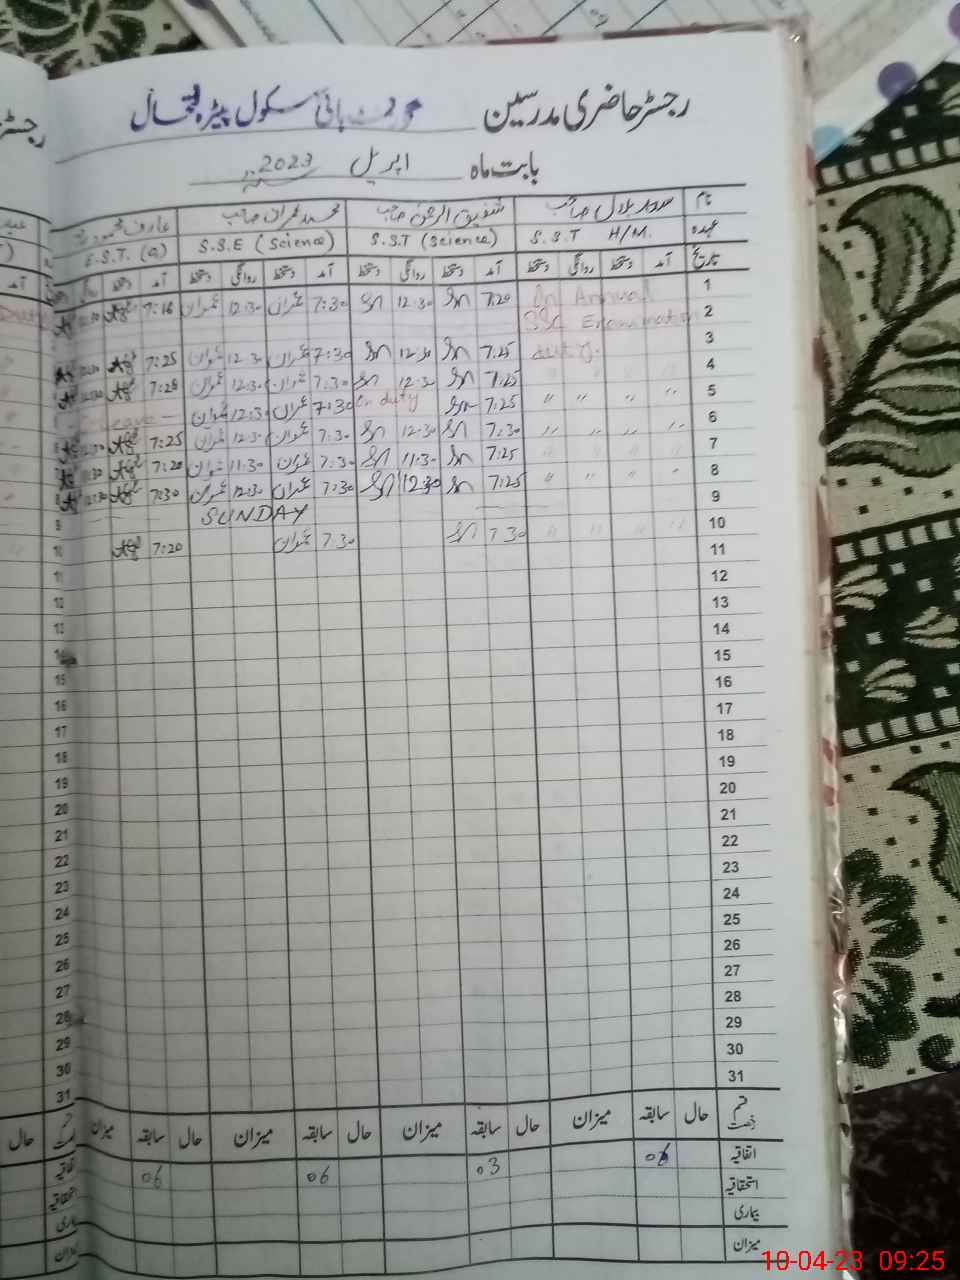 رجسٹر حاضری مدرسین گورنمنٹ ہائی سکول
بابت ماہ اپریل 2023
نام سردار بلال صاحب شفیق الرحمٰن صاحب محمد عمران صاحب عارف محمود
عہدہ S.S.T H/M. S.S.T (Science) S.S.E (Science) E.S.T. (G)
تاریخ آمد دستخط روانگی دستخط آمد دستخط روانگی دستخط آمد دستخط روانگی دستخط آمد دستخط روانگی
1 On Annual 7:20 12:30 7:30 عمران 12:30 عمران 7:16
2 SSC Examination
3 duty. 7:25 12:30 7:30 عمران 12:30 عمران 7:25
4 7:25 12:30 7:30 عمران 12:30 عمران 7:28
5 " " " " 7:25 On duty 7:30 عمران 12:30 عمران leave
6 " " " " 7:30 12:30 7:30 عمران 12:30 عمران 7:25
7 7:25 11:30 7:30 عمران 11:30 عمران 7:20
8 " " " " 7:25 12:30 7:30 عمران 12:30 عمران 7:30
9 SUNDAY
10 " " " " 7:30 7:30 عمران 7:20
11
12
13
14
15
16
17
18
19
20
21
22
23
24
25
26
27
28
29
30
31
قسم رخصت حال سابقہ میزان حال سابقہ میزان حال سابقہ میزان حال سابقہ میزان
اتفاقیہ 06 03 06 06
استحقاقیہ
بیماری
میزان
10-04-23 09:25